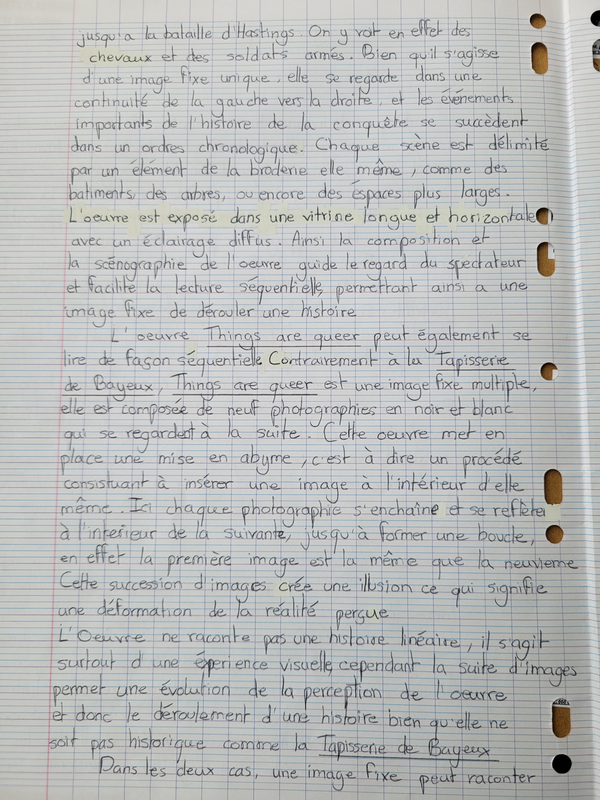 jusqu'a la bataille d'Hastings. On y voit en effet des
chevaux et des soldats armés. Bien qu'il s'agisse
d'une image fixe unique, elle se regarde dans une
continuité de la gauche vers la droite, et les événements
importants de l'histoire de la conquête se succèdent
dans un ordres chronologique. Chaque scène est délimité
par un élément de la broderie elle même, comme des
batiments, des arbres, ou encore des espaces plus larges.
L'oeuvre est exposé dans une vitrine longue et horizontale
avec un éclairage diffus. Ainsi la composition et
la scénographie de l'oeuvre guide le regard du spectateur
et facilite la lecture séquentielle, permettant ainsi a une
image fixe de dérouler une histoire
L'oeuvre Things are queer peut également se
lire de façon séquentielle Contrairement à la Tapisserie
de Bayeux, Things are queer est une image fixe multiple,
elle est composée de neuf photographies en noir et blanc
qui se regardent à la suite. Cette oeuvre met en
place une mise en abyme, c'est à dire un procédé
consistuant à insérer une image à l'intérieur d'elle
même. Ici chaque photographie s'enchaîne et se reflèter
à l'interieur de la suivante, jusqu'à former une boucle,
en effet la première image est la même que la neuvieme
Cette succession d'images crée une illusion ce qui signifie
une déformation de la réalité perçue
L'Oeuvre ne raconte pas une histoire linéaire, il s'agit
surtout d'une éperience visuelle, cependant la suite d'images
permet une évolution de la perception de l'oeuvre
et donc le déroulement d'une histoire bien qu'elle ne
soit pas historique comme la Tapisserie de Bayeux
Dans les deux cas, une image fixe peut raconter